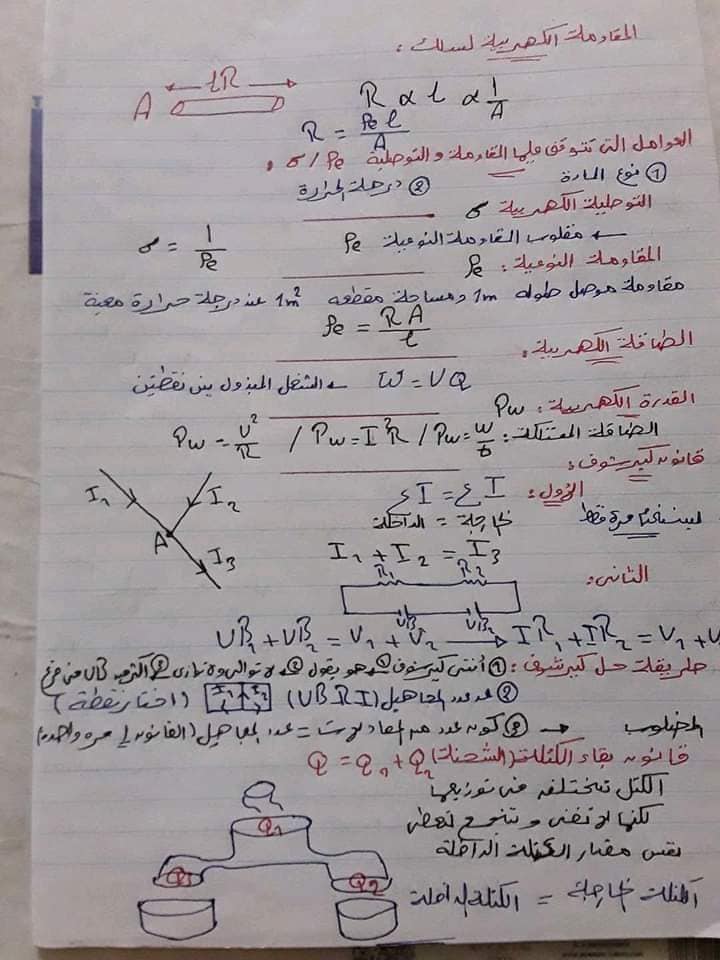 المقاومة الكهربية لسلك :
A
R ∝ l ∝ 1/A
R = ρe l / A
العوامل التي تتوقف عليها المقاومة و التوصلية σ / ρe .
① نوع المادة ② درجة الحرارة
التوصلية الكهربية σ
← مقلوب المقاومة النوعية ρe σ = 1/ρe
المقاومة النوعية : ρe
مقاومة موصل طوله 1m ومساحة مقطعه 1m² عند درجة حرارة معينة
ρe = RA / l
الطاقة الكهربية :
W = VQ ← الشغل المبذول بين نقطتين
القدرة الكهربية : Pw
الطاقة المستهلكة : Pw = W/t / Pw = I²R / Pw = V²/R
قانون كيرشوف :
الأول : ΣI = ΣI
الخارجة = الداخلة
يستخدم مرة فقط
I₁ + I₂ = I₃
I₁ I₂ A I₃
الثاني :
R₁ R₂
VB₁ VB₂
VB₁ + VB₂ = V₁ + V₂ → IR₁ + IR₂ = V₁ + V
طريقة حل كيرشوف : ①
② عدد المجاهيل (VB R I) I₁ I₂ (اختار نقطة)
المطلوب → ③ كون عدد من المعادلات = عدد المجاهيل (القانون مرة واحدة)
قانون بقاء الكتلة (الشحنات) Q = Q₁ + Q₂
الكتل تختلف في توزيعها
لكنها لا تفنى و تتجمع لتعطي
نفس مقدار الكتلة الداخلة
الكتلة الخارجة = الكتلة الداخلة
Q₁ Q₂